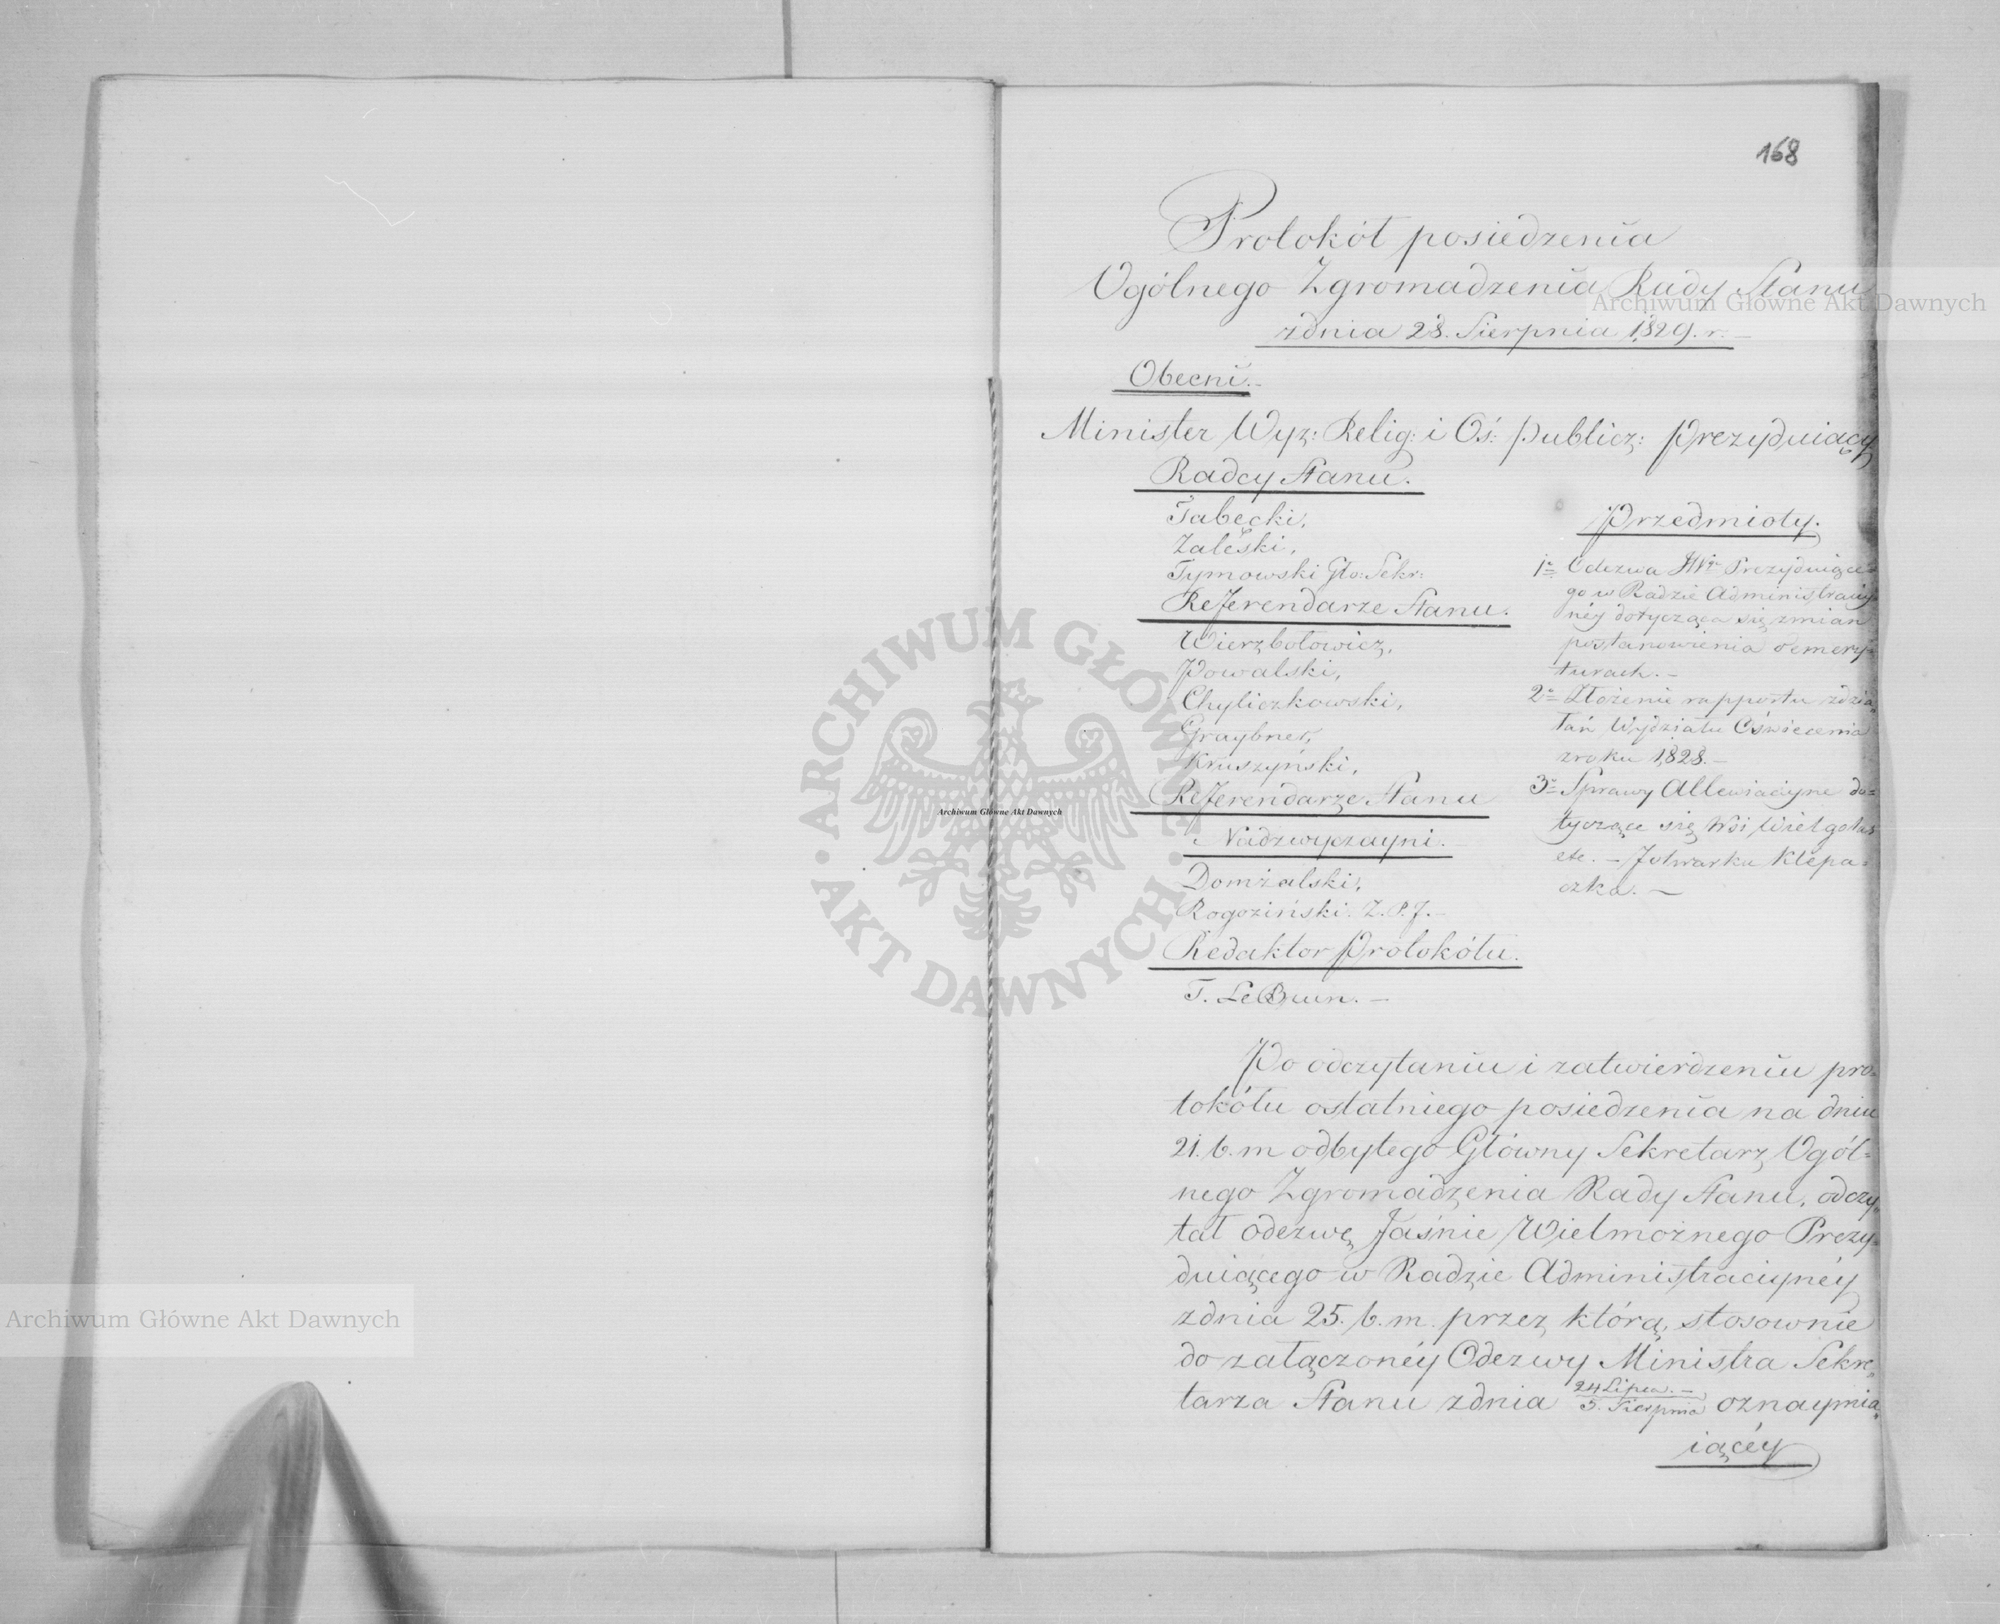 168
Protokół posiedzenia
Ogólnego Zgromadzenia Rady Stanu
zdnia 28. Sierpnia 1829. r. –
Obecni. –
Minister Wyz: Relig: i Oś: publicz: prezyduiący
Radcy Stanu.
Tabęcki,
Zaleski,
Tymowski Gło: Sekr:
Referendarze Stanu.
Wierzbołowicz,
Powalski,
Chyliczkowski,
Graybner,
Kruszyński,
Referendarze Stanu
Nadzwyczayni.
Domżalski,
Rogoziński. Z.P.J. –
Redaktor protokółu.
T. LeBrun. –
Przedmioty.
1º Odezwa JWgo Prezyduiące=
go w Radzie Administracyi=
néy dotycząca się zmian
postanowienia o emery=
turach. –
2º Złożenie rapportu zdzia=
łań Wydziału Oświecenia
zroku 1828. –
3º Sprawy Allewiacyine do=
tyczące się Wsi Wielgolas
etc. – folwarku Klepa=
czka. –
Po odczytaniu i zatwierdzeniu pro=
tokółu ostatniego posiedzenia na dniu
21. b. m odbytego Główny Sekretarz Ogól=
nego Zgromadzenia Rady Stanu, odczy=
tał odezwę Jaśnie Wielmożnego Prezy=
duiącego w Radzie Administracyinéy
zdnia 25. b. m. przez którą, stosownie
do załączonéy Odezwy Ministra Sekre=
tarza Stanu zdnia 24 Lipca. – / 5. Sierpnia oznaymia=
iącéy
Archiwum Główne Akt Dawnych
Archiwum Główne Akt Dawnych
Archiwum Główne Akt Dawnych
ARCHIWUM GŁÓWNE · AKT DAWNYCH ·